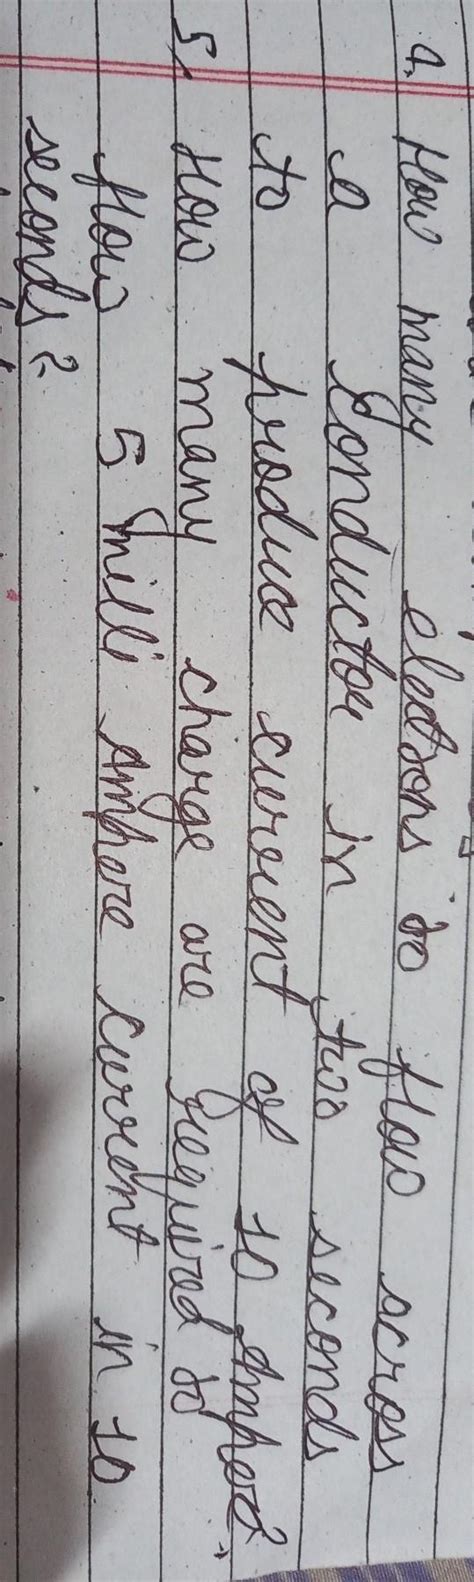 4. How many electrons to flow across
a conductor in two seconds
to produce current of 10 Ampere?
5, How many charge are required to
flow 5 milli Ampere current in 10
seconds?